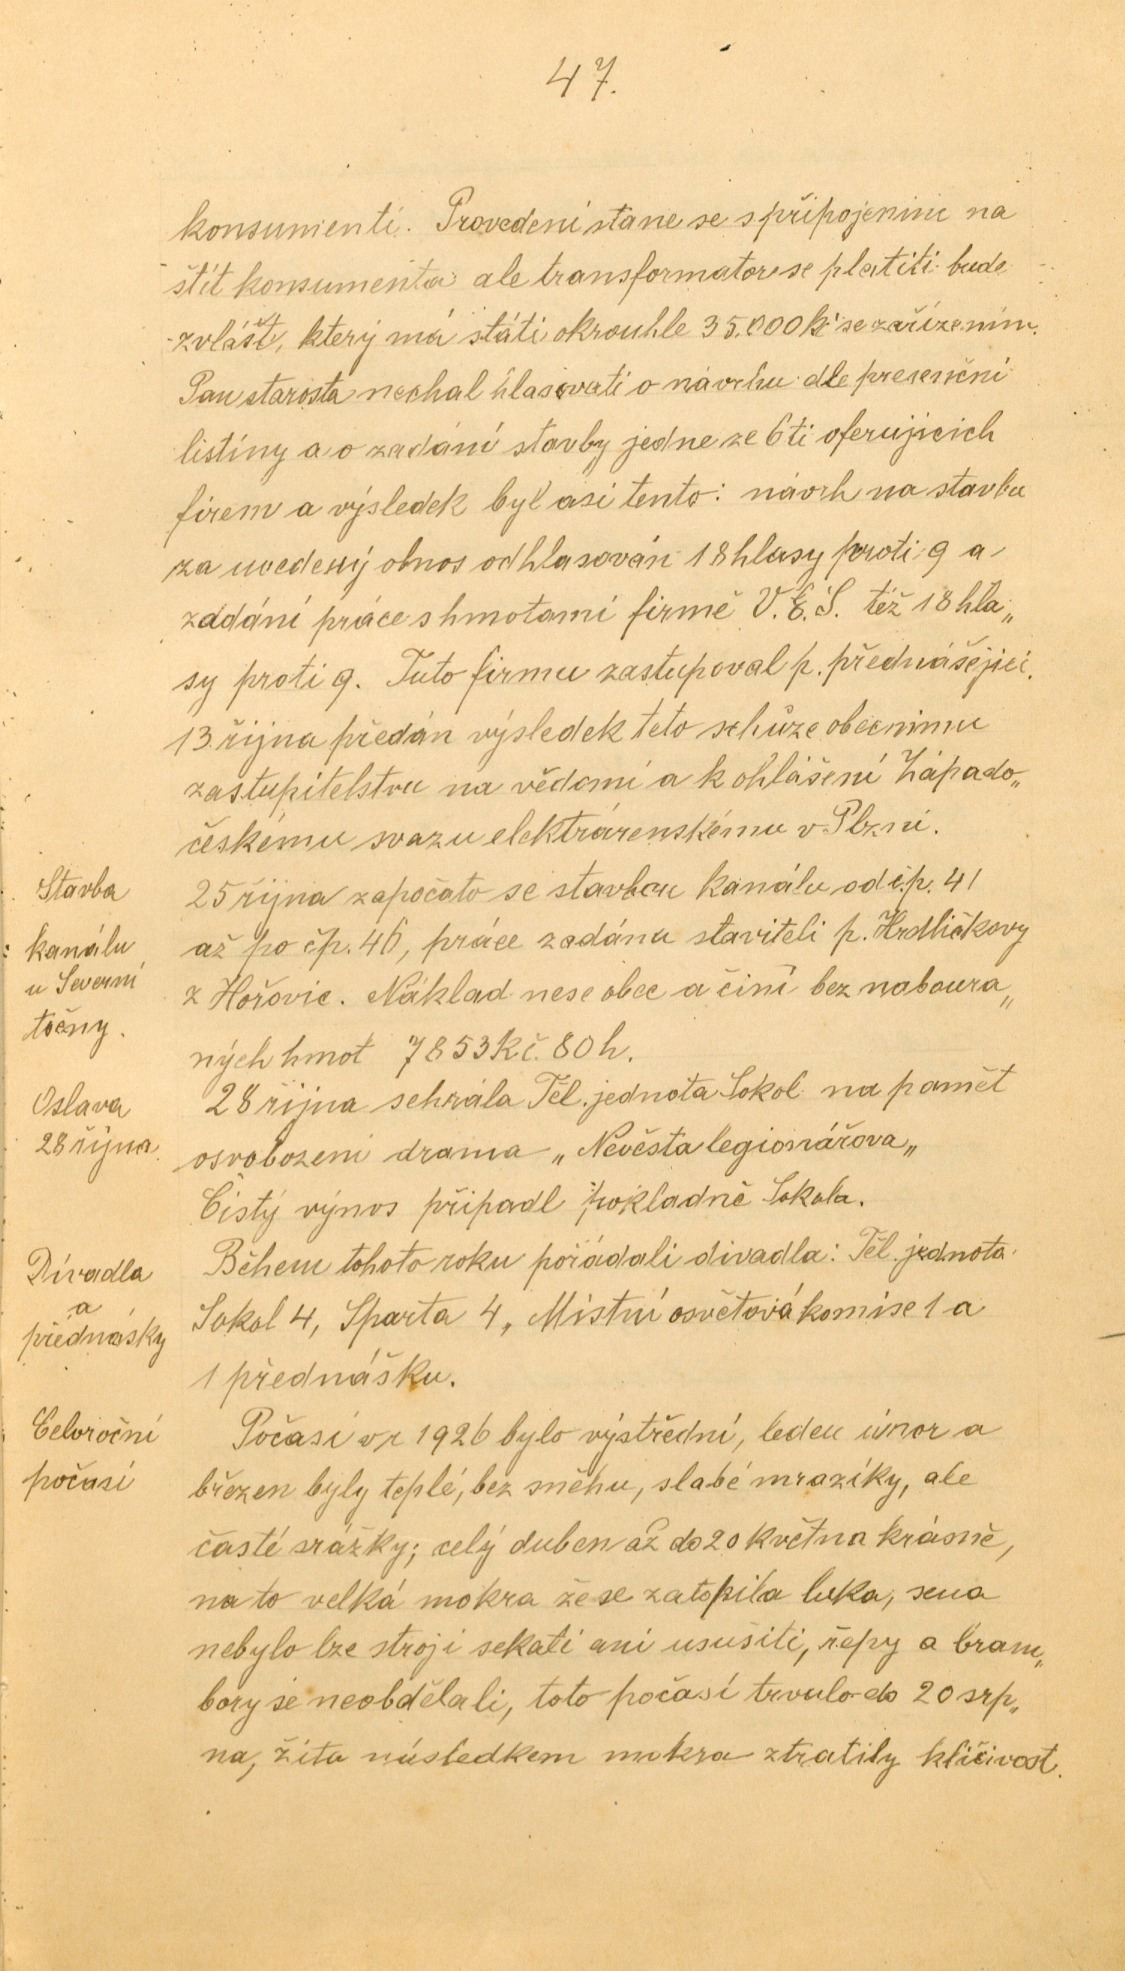 47.
konsumenti. Provedení stane se s připojením na
štít konsumenta ale transformator se platiti bude
zvlášť, který má státi okrouhle 35.000 kč se zařízením.
Pan starosta nechal hlasovati o návrhu dle presenční
listiny a o zadání stavby jedne ze 6ti oferujicich
firem a výsledek byl asi tento: návrh na stavbu
za uvedený obnos odhlasován 18 hlasy proti 9 a
zadání práce s hmotami firmě V.E.S. též 18 hla„
sy proti 9. Tuto firmu zastupoval p. přednášejici.
13. října předán výsledek teto schůze obecnimu
zastupitelstvu na vědomí a k ohlášení Západo„
českému svazu elektrárenskému v Plzni.
Stavba
kanálu
u Severní
točny.
25 října započato se stavbou kanálu od č.p. 41
až po čp. 46, práce zadána staviteli p. Hrdličkovy
z Hořovic. Náklad nese obec a činí bez naboura„
ných hmot 7853 Kč. 80 h.
Oslava
28 října.
28 října sehrála Těl. jednota Sokol na pamět
osvobozeni drama „Nevěsta legionářova„
Čistý výnos připadl pokladně Sokola.
Divadla
a
přednášky
Během tohoto roku pořádali divadla: Těl. jednota
Sokol 4, Sparta 4, Mistní osvětová komise 1 a
1 přednášku.
Celoroční
počasí
Počasí v r 1926 bylo výstřední, leden únor a
březen byly teplé, bez sněhu, slabé mrazíky, ale
časté srážky; celý duben až do 20 května krásně,
na to velká mokra že se zatopila luka, sena
nebylo lze stroji sekati ani usušiti, řepy a bram„
bory se neobdělali, toto počasí trvalo do 20 srp„
na, žita následkem mokra ztratily klíčivost.